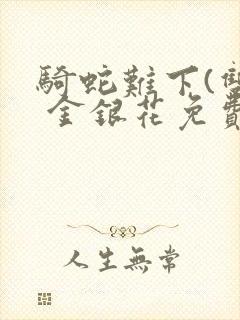 騎蛇難下(雙
金銀花免費
人生無常